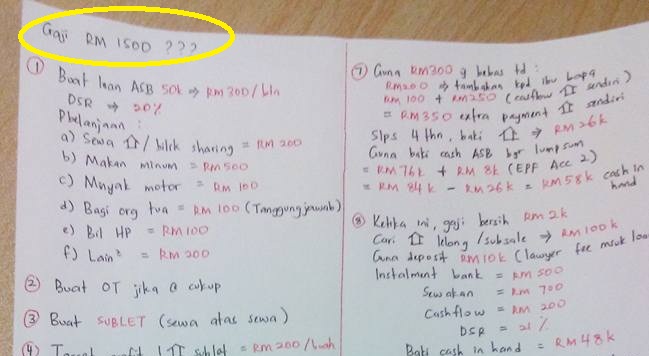 Gaji RM 1500 ???
① Buat loan ASB 50k ⇒ RM 300/bln
DSR ⇒ 20%
Pbelanjaan :
a) Sewa / bilik sharing = RM 200
b) Makan minum = RM 500
c) Minyak motor = RM 100
d) Bagi org tua = RM 100 (Tanggungjawab)
e) Bil HP = RM 100
f) Lain² = RM 200
② Buat OT jika @ cukup
③ Buat SUBLET (sewa atas sewa)
④ profit 1 sublet = RM 200/buah
⑦ Guna RM300 yg bebas td :
RM200 ⇒ tambahan kpd ibu bapa
RM 100 + RM250 (cashflow sendiri)
= RM350 extra payment sendiri
Slps 4 thn, baki ⇒ RM 26k
Guna baki cash ASB byr lumpsum
= RM 76k + RM 8k (EPF Acc 2)
= RM 84k - RM 26k = RM 58k cash in hand
⑧ Ketika ini, gaji bersih RM 2k
Cari lelong /subsale ⇒ RM 100k
Guna deposit RM 10k (lawyer fee msuk loan
Instalment bank = RM 500
Sewakan = RM 700
Cashflow = RM 200
DSR = 21 %
Baki cash in hand = RM 48k